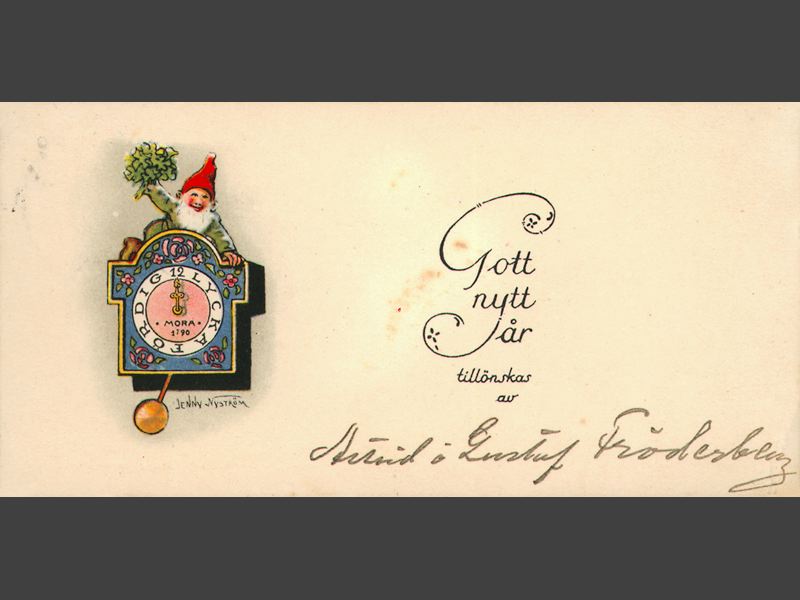 12
LYCKA FÖR DIG
MORA
1790
JENNY NYSTRÖM
Gott
nytt
år
tillönskas
av
Astrid o Gustaf Fröderberg